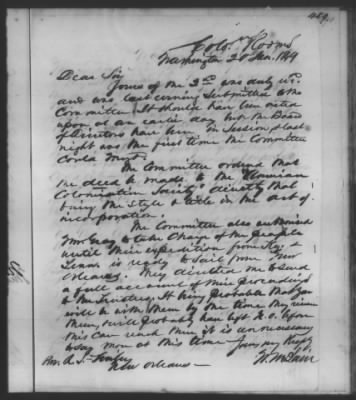 Colo. Rooms
Washington 20 Jan. 1849
Dear Sir
Yours of the 2nd was duly rec.
and was last evening submitted to the
Committee. It should have been acted
upon at an earlier day but the Board
of Directors have been in session & last
night was the first time the Committee
could meet.
The Committee ordered that
the deed be made to the "American
Colonization Society" directly that
being the style & title in the act of
incorporation.
The Committee also authorised
to take charge of the people
until their expedition from Ky. &
Tenn. is ready to sail from New
Orleans. They directed me to send
a full account of their proceedings
to the Trustees. It being probable that you
will be with them by the time they receive
them, & will probably have left N.O. before
this can reach there, it is unnecessary
to say more at this time. Yours very Respy
W. McLain
New Orleans